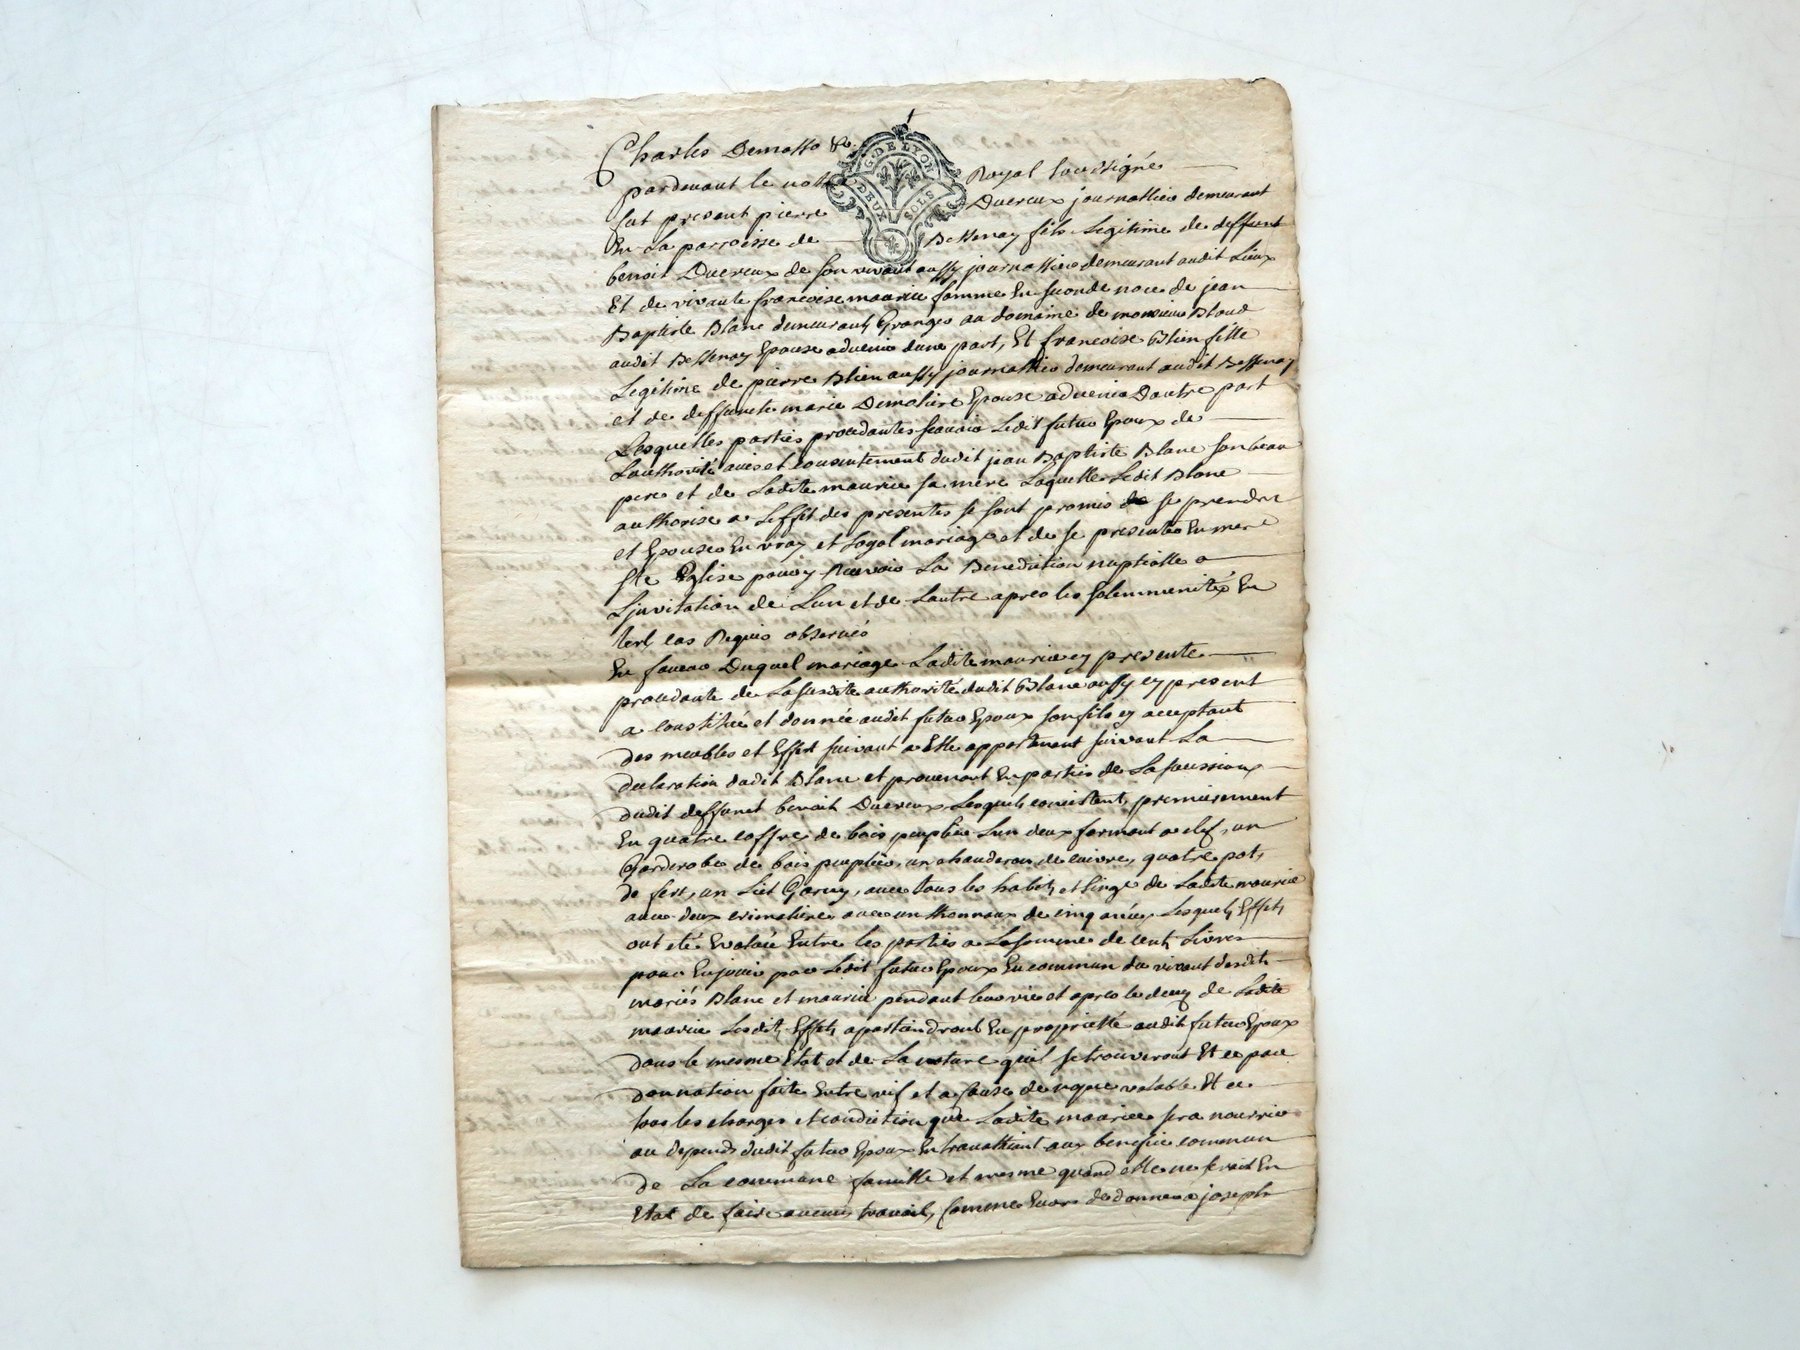 Charles Demasso &c.
G. DE LYON
DEUX SOLS
pardevant le nott Royal soussigné
fut present pierre Ducreux journallier demeurant
En La parroisse de Bessenay fils Legitime de deffunt
benoit Ducreux de son vivant aussy journallier demeurant audit Lieux
Et de vivante francoise maurice famme En seconde noce de jean
Baptiste Blanc demeurant Granger au domaine de monsieur Bloud
audit Bessenay Epoux advenir dune part, Et francoise Blien fille
Legitime de pierre Blien aussy journallier demeurant audit Bessenay
et de deffuncte marie Demoliere Epouse advenir Dautre part
Lesquelles parties procedantes scavoir Ledit futur Epoux de
Lauthorité avis et consentement dudit jean Baptiste Blanc son beau
pere et de Ladite maurice sa mere Laquelle Ledit Blanc
authorise a Leffet des presentes se sont promis de se prendre
et Epouser En vray et Loyal mariage et de se presenter En mere
Ste Eglise pour y Recevoir La Benediction nuptialle a
Ljnvitation de Lun et de Lautre apres les solemmenitéz En
tels cas Requis observés
En faveur Duquel mariage Ladite maurice cy presente
procedante de La susdite authorité dudit Blanc aussy cy present
a constitué et donnée audit futur Epoux son fils cy acceptant
Des meubles et Effet suivant a Elle appartenant suivant La
declaration dudit Blanc et provenant En parties de La sucssion
dudit deffunct benoit Ducreux Lesquels consistent, premierement
En quatre coffres de bois peuplier Lun deux fermant a clef, un
Garderobe de bois peuplier, un chauderon de cuivre, quatre pot,
de fert, un Liet Garny, avec tous les habits et Linge de Ladite maurice
avec deux crimaliere avec un thonneaux de cinq anées, Lesquels Effets
ont eté Evaluée Entre les parties a La somme de cent Livres
pour En jouir par Ledit futur Epoux En commun du vivant desdits
mariés Blanc et maurice pendant leur vie et apres le deces de Ladite
maurice Lesdits Effets apartiendront En proprietté audit futur Epoux
dans le mesme Etat et de La nature quil se trouveront Et ce par
donnation faite Entre vif et a cause de nopce valable Et ce
sous les charges et condiction que Ladite maurice sera nourrie
au depends dudit futur Epoux En travaillant aux benefice commun
de La commune famille et mesme quand elle ne seroit En
Etat de faire aucun travail, comme Encore de donner a joseph